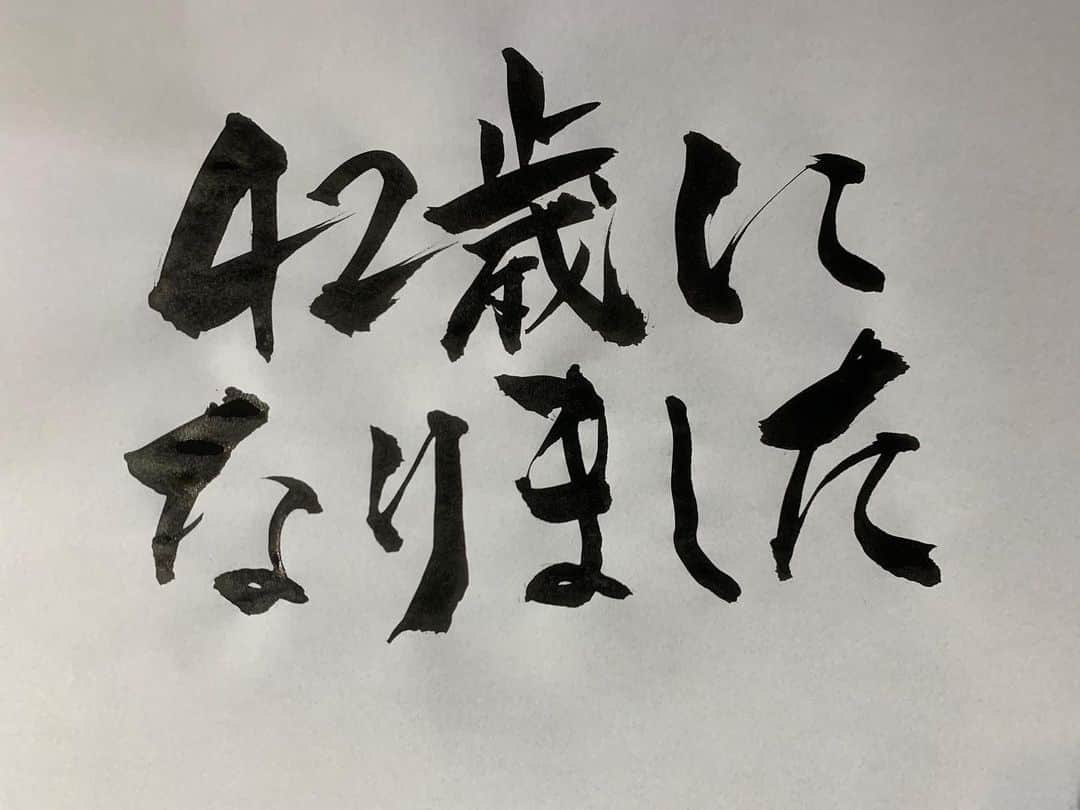 42歳に
なりました